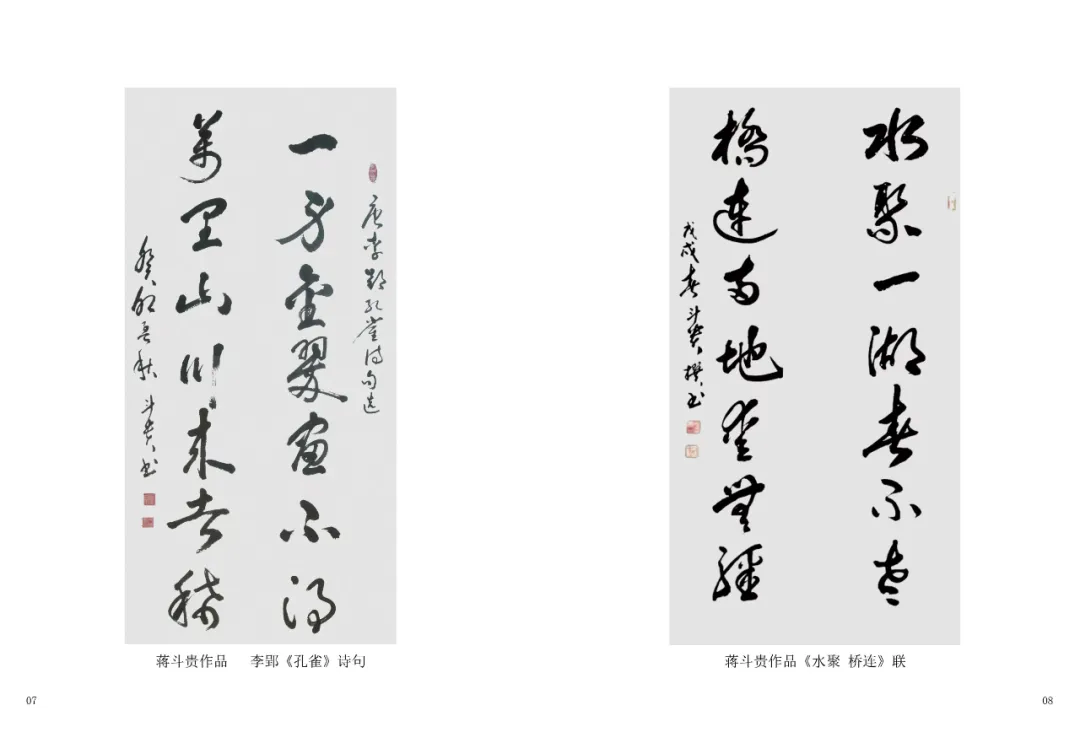 唐李郢孔雀诗句选
一身金翠畫不得
萬里山川來者稀
癸卯秋 斗貴书
蒋斗贵作品 李郢《孔雀》诗句
07
水聚一湖春不老
橋連两地無
戊戌春斗貴撰书
蒋斗贵作品《水聚 桥连》联
08